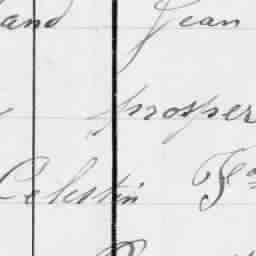 and Jean
prosper
Celestin